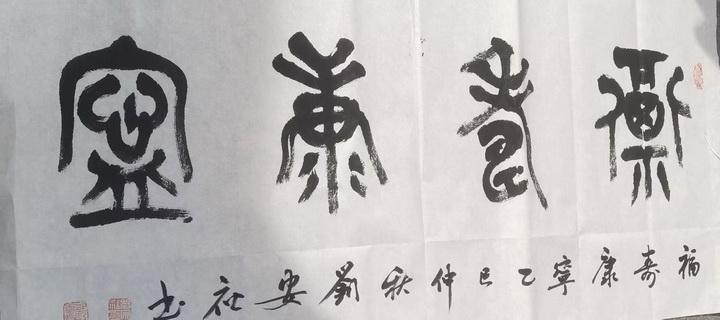 福壽康寧
福壽康寧乙巳仲秋劉安社書